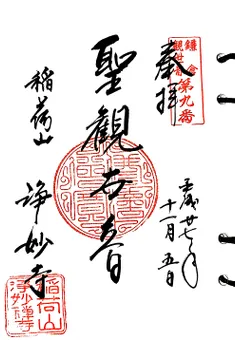 鎌倉
観世音
第九番
奉拝
平成廿七年
十一月五日
聖觀世音
稲荷山
淨妙寺
稲荷山